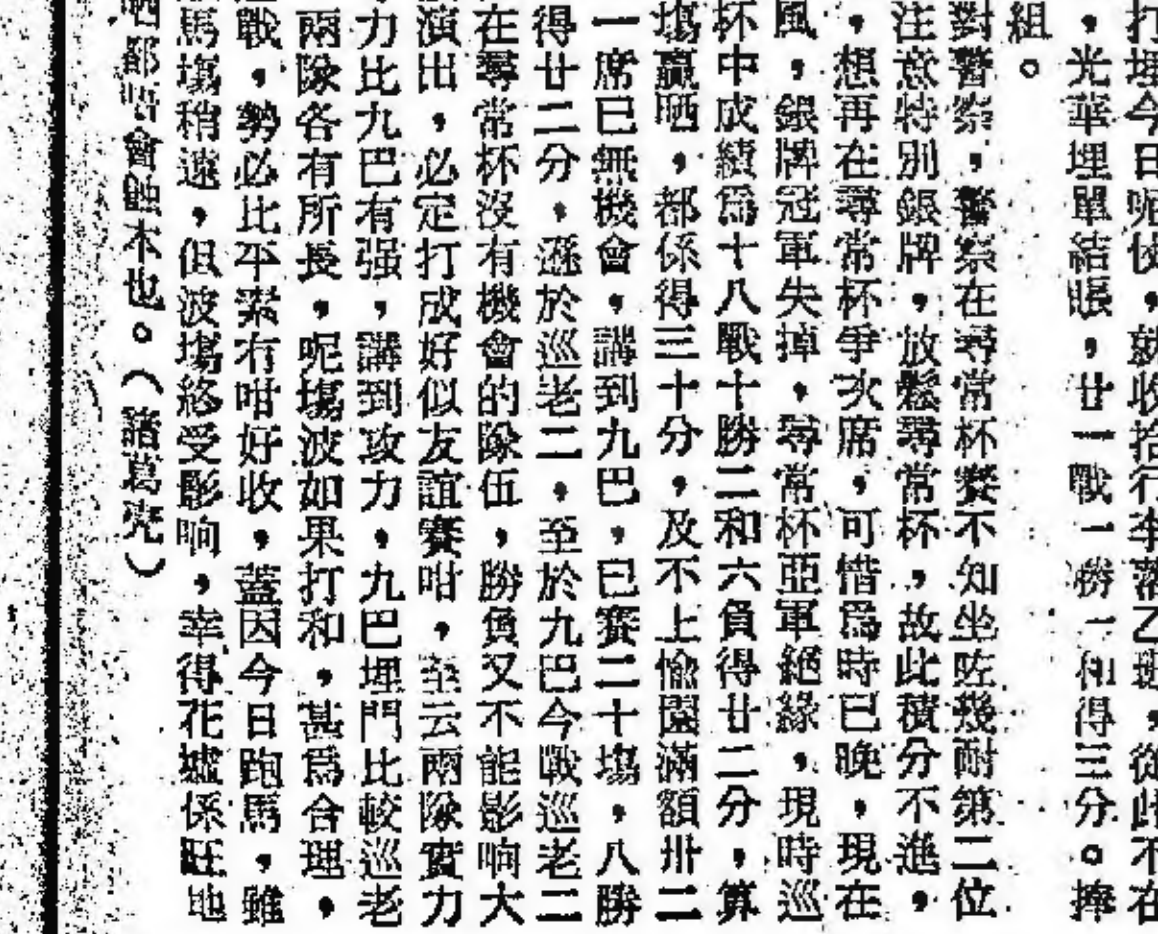 打埋今日呢伙，就收拾行李落乙班，從此不在
，光華埋單結賬，廿一戰一勝一和得三分。捧
組。
對警察，警察在尋常杯賽不知坐咗幾耐第二位
注意特別銀牌，放鬆尋常杯，故此積分不進，
，想再在尋常杯爭次席，可惜爲時已晚，現在
風，銀牌冠軍失掉，尋常杯亞軍絕緣，現時巡
杯中成績爲十八戰十勝二和六負得廿二分，算
塲贏晒，都係得三十分，及不上愉園滿額卅二
一席已無機會，講到九巴，已賽二十塲，八勝
得廿二分，遜於巡老二，至於九巴今戰巡老二
在尋常杯沒有機會的隊伍，勝負又不能影响大
演出，必定打成好似友誼賽咁，至云兩隊實力
力比九巴有强，講到攻力，九巴埋門比較巡老
兩隊各有所長，呢塲波如果打和，甚爲合理，
戰，勢必比平素冇咁好收，蓋因今日跑馬，雖
馬塲稍遠，但波塲終受影响，幸得花墟係旺地
晒都唔會蝕本也。（諸葛亮）